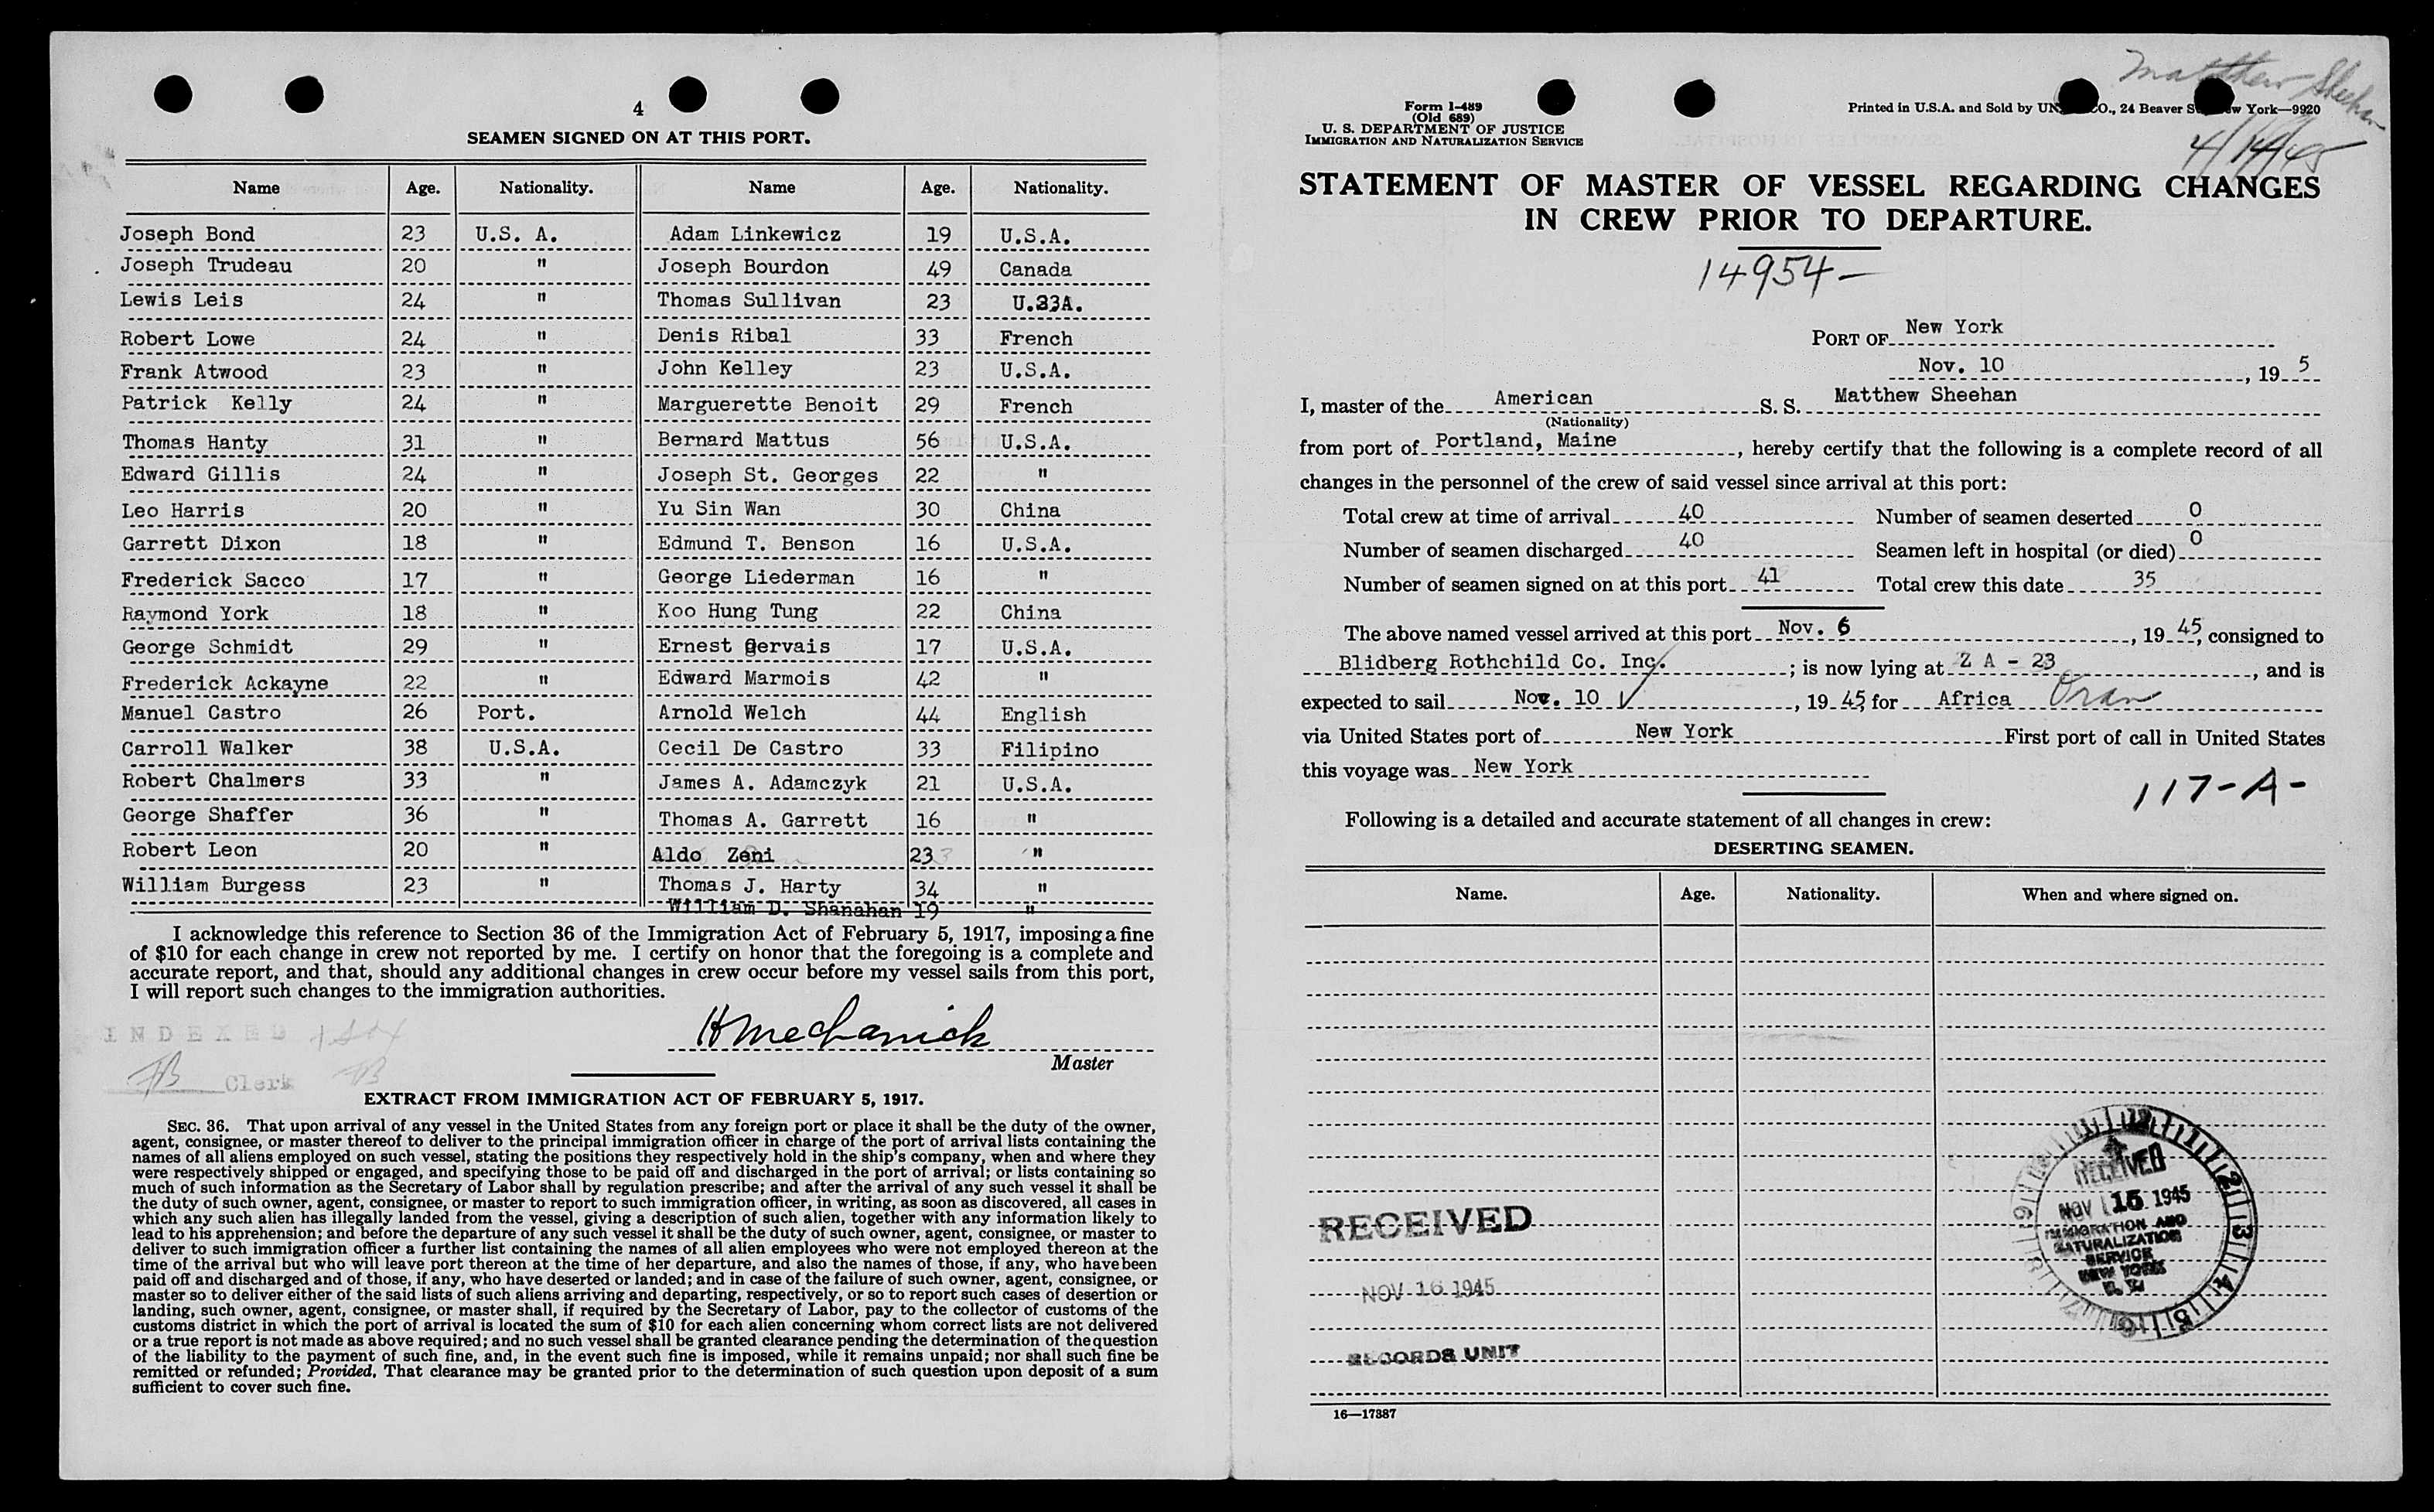 4
SEAMEN SIGNED ON AT THIS PORT.
Name Age. Nationality. Name Age. Nationality.
Joseph Bond 23 U.S. A. Adam Linkewicz 19 U.S.A.
Joseph Trudeau 20 " Joseph Bourdon 49 Canada
Lewis Leis 24 " Thomas Sullivan 23 U.S.A.
Robert Lowe 24 " Denis Ribal 33 French
Frank Atwood 23 " John Kelley 23 U.S.A.
Patrick Kelly 24 " Marguerette Benoit 29 French
Thomas Hanty 31 " Bernard Mattus 56 U.S.A.
Edward Gillis 24 " Joseph St. Georges 22 "
Leo Harris 20 " Yu Sin Wan 30 China
Garrett Dixon 18 " Edmund T. Benson 16 U.S.A.
Frederick Sacco 17 " George Liederman 16 "
Raymond York 18 " Koo Hung Tung 22 China
George Schmidt 29 " Ernest Gervais 17 U.S.A.
Frederick Ackayne 22 " Edward Marmois 42 "
Manuel Castro 26 Port. Arnold Welch 44 English
Carroll Walker 38 U.S.A. Cecil De Castro 33 Filipino
Robert Chalmers 33 " James A. Adamczyk 21 U.S.A.
George Shaffer 36 " Thomas A. Garrett 16 "
Robert Leon 20 " Aldo Zeni 23 "
William Burgess 23 " Thomas J. Harty 34 "
William D. Shanahan 19 "
I acknowledge this reference to Section 36 of the Immigration Act of February 5, 1917, imposing a fine
of $10 for each change in crew not reported by me. I certify on honor that the foregoing is a complete and
accurate report, and that, should any additional changes in crew occur before my vessel sails from this port,
I will report such changes to the immigration authorities.
H Mechanick
Master
INDEXED
FB Clerk FB
EXTRACT FROM IMMIGRATION ACT OF FEBRUARY 5, 1917.
SEC. 36. That upon arrival of any vessel in the United States from any foreign port or place it shall be the duty of the owner,
agent, consignee, or master thereof to deliver to the principal immigration officer in charge of the port of arrival lists containing the
names of all aliens employed on such vessel, stating the positions they respectively hold in the ship's company, when and where they
were respectively shipped or engaged, and specifying those to be paid off and discharged in the port of arrival; or lists containing so
much of such information as the Secretary of Labor shall by regulation prescribe; and after the arrival of any such vessel it shall be
the duty of such owner, agent, consignee, or master to report to such immigration officer, in writing, as soon as discovered, all cases in
which any such alien has illegally landed from the vessel, giving a description of such alien, together with any information likely to
lead to his apprehension; and before the departure of any such vessel it shall be the duty of such owner, agent, consignee, or master to
deliver to such immigration officer a further list containing the names of all alien employees who were not employed thereon at the
time of the arrival but who will leave port thereon at the time of her departure, and also the names of those, if any, who have been
paid off and discharged and of those, if any, who have deserted or landed; and in case of the failure of such owner, agent, consignee, or
master so to deliver either of the said lists of such aliens arriving and departing, respectively, or so to report such cases of desertion or
landing, such owner, agent, consignee, or master shall, if required by the Secretary of Labor, pay to the collector of customs of the
customs district in which the port of arrival is located the sum of $10 for each alien concerning whom correct lists are not delivered
or a true report is not made as above required; and no such vessel shall be granted clearance pending the determination of the question
of the liability to the payment of such fine, and, in the event such fine is imposed, while it remains unpaid; nor shall such fine be
remitted or refunded; Provided, That clearance may be granted prior to the determination of such question upon deposit of a sum
sufficient to cover such fine.
Matthew Sheehan
4/14/45
Form I-489
(Old 689)
U. S. DEPARTMENT OF JUSTICE
IMMIGRATION AND NATURALIZATION SERVICE
Printed in U.S.A. and Sold by UN CO., 24 Beaver S New York—9920
STATEMENT OF MASTER OF VESSEL REGARDING CHANGES
IN CREW PRIOR TO DEPARTURE.
14954-
PORT OF New York
Nov. 10, 19 5
I, master of the American S. S. Matthew Sheehan
(Nationality)
from port of Portland, Maine, hereby certify that the following is a complete record of all
changes in the personnel of the crew of said vessel since arrival at this port:
Total crew at time of arrival 40 Number of seamen deserted 0
Number of seamen discharged 40 Seamen left in hospital (or died) 0
Number of seamen signed on at this port 41 Total crew this date 35
The above named vessel arrived at this port Nov. 6, 19 45, consigned to
Blidberg Rothchild Co. Inc.; is now lying at Z A - 23, and is
expected to sail Nov. 10, 19 45 for Africa Oran
via United States port of New York First port of call in United States
this voyage was New York
117-A-
Following is a detailed and accurate statement of all changes in crew:
DESERTING SEAMEN.
Name. Age. Nationality. When and where signed on.
RECEIVED
NOV 15 1945
IMMIGRATION AND
NATURALIZATION
SERVICE
NEW YORK
N. Y.
RECEIVED
NOV 16 1945
RECORDS UNIT
16—17387